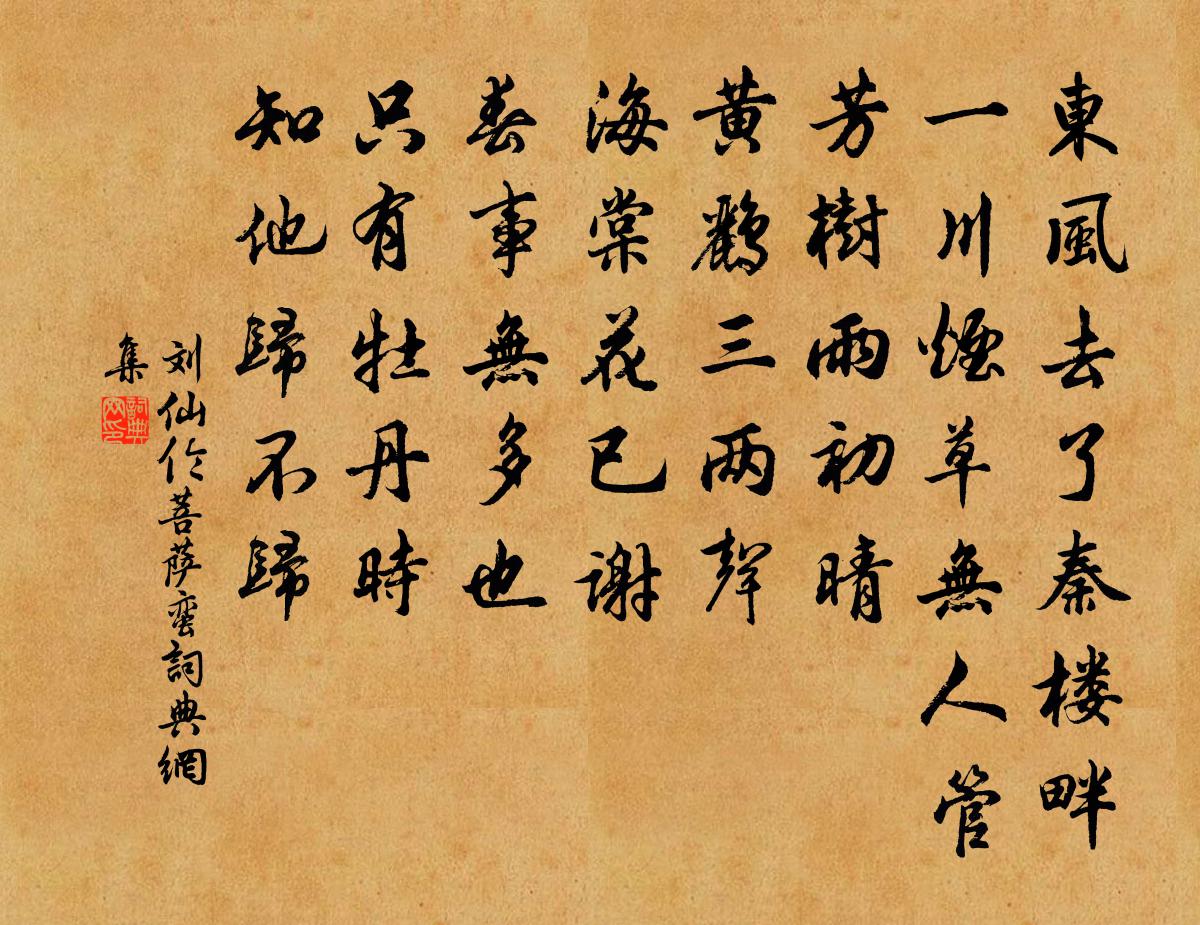 東風去了秦楼畔
一川煙草無人管
芳樹雨初晴
黄鸝三两聲
海棠花已謝
春事無多也
只有牡丹時
知他歸不歸
刘仙伦菩萨蛮詞典網
集
詞典
网印